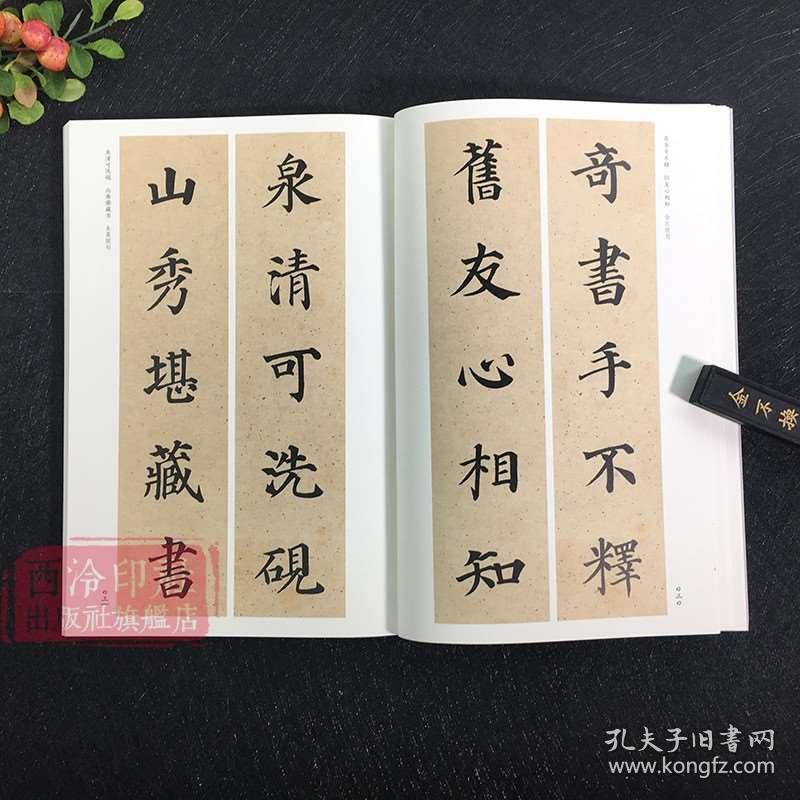 奇書手不釋
舊友心相知
泉清可洗硯
山秀堪藏書
奇書手不釋 舊友心相知
泉清可洗硯 山秀堪藏書
金不換
西泠印
出版社旗艦店
孔夫子旧书网
www.kongfz.com